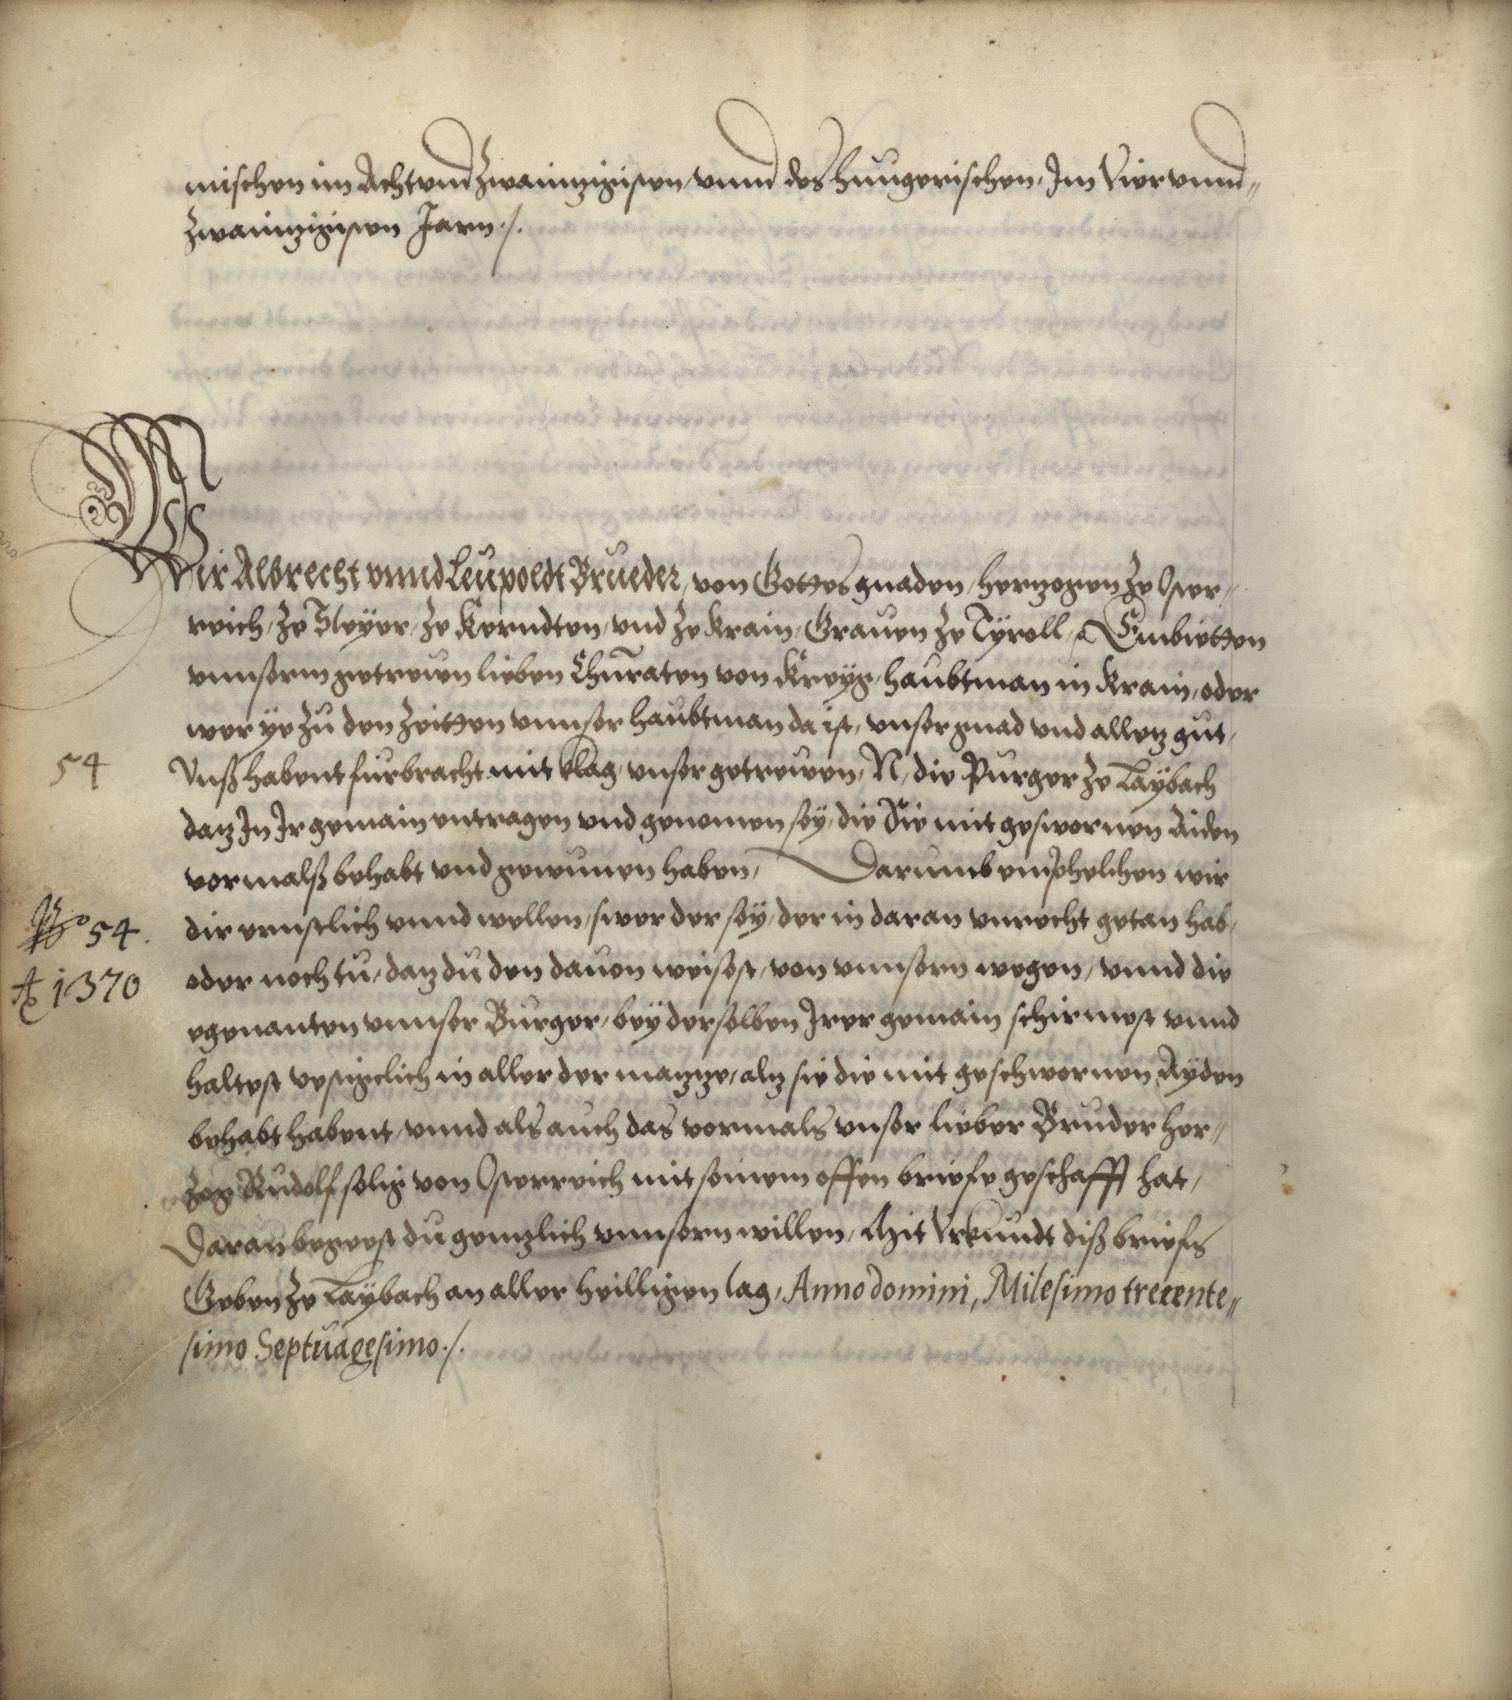 mischen im Achtvnd Zwaintzigisten, vnnd des Hungerischen, Im Vier vnnd„
Zwaintzigisten Jarn ./.
Wir Albrecht vnnd Leupoldt Brueder, von Gottes gnaden, Hertzogen ze Oster„
reich, ze Steyer, ze Kerndten, vnd ze Krain, Grauen ze Tyroll, Embietten
vnnserm getrewen lieben Chunraten von Kreyg, Haubtman in Krain, oder
wer ye zu den Zeitten vnnser Haubtman da ist, vnser gnad vnd allez gut,
54
Vnß habent furbracht mit klag, vnser getrewen, N, die Purger ze Laybach
daz In Ir gemain entragen vnd genomen sey, die Sie mit geswornen Aiden
vormalß behabt vnd gewunen haben, Darumb emphelhen wir
No 54.
dir ernstlich vnnd wellen, swer der sey, der in daran vnrecht getan hab,
Ao 1370
oder noch tu, daz du den dauon weisest, von vnnsern wegen, vnnd die
egenanten vnnser Burger, bey derselben Irer gemain schirmest vnnd
haltest vestigclich in aller der mazze, alz sie die mit geschwornen Ayden
behabt habent, vnnd als auch das vormals vnser lieber Bruder Her„
zog Rudolf selig von Osterreich mit seinem offen briefe geschafft hat,
Daran begeest du gentzlich vnnsern willen, Mit Vrkundt diß briefs
Geben ze Laybach an aller Heilligen tag, Anno domini, Milesimo trecente„
simo Septuagesimo ./.